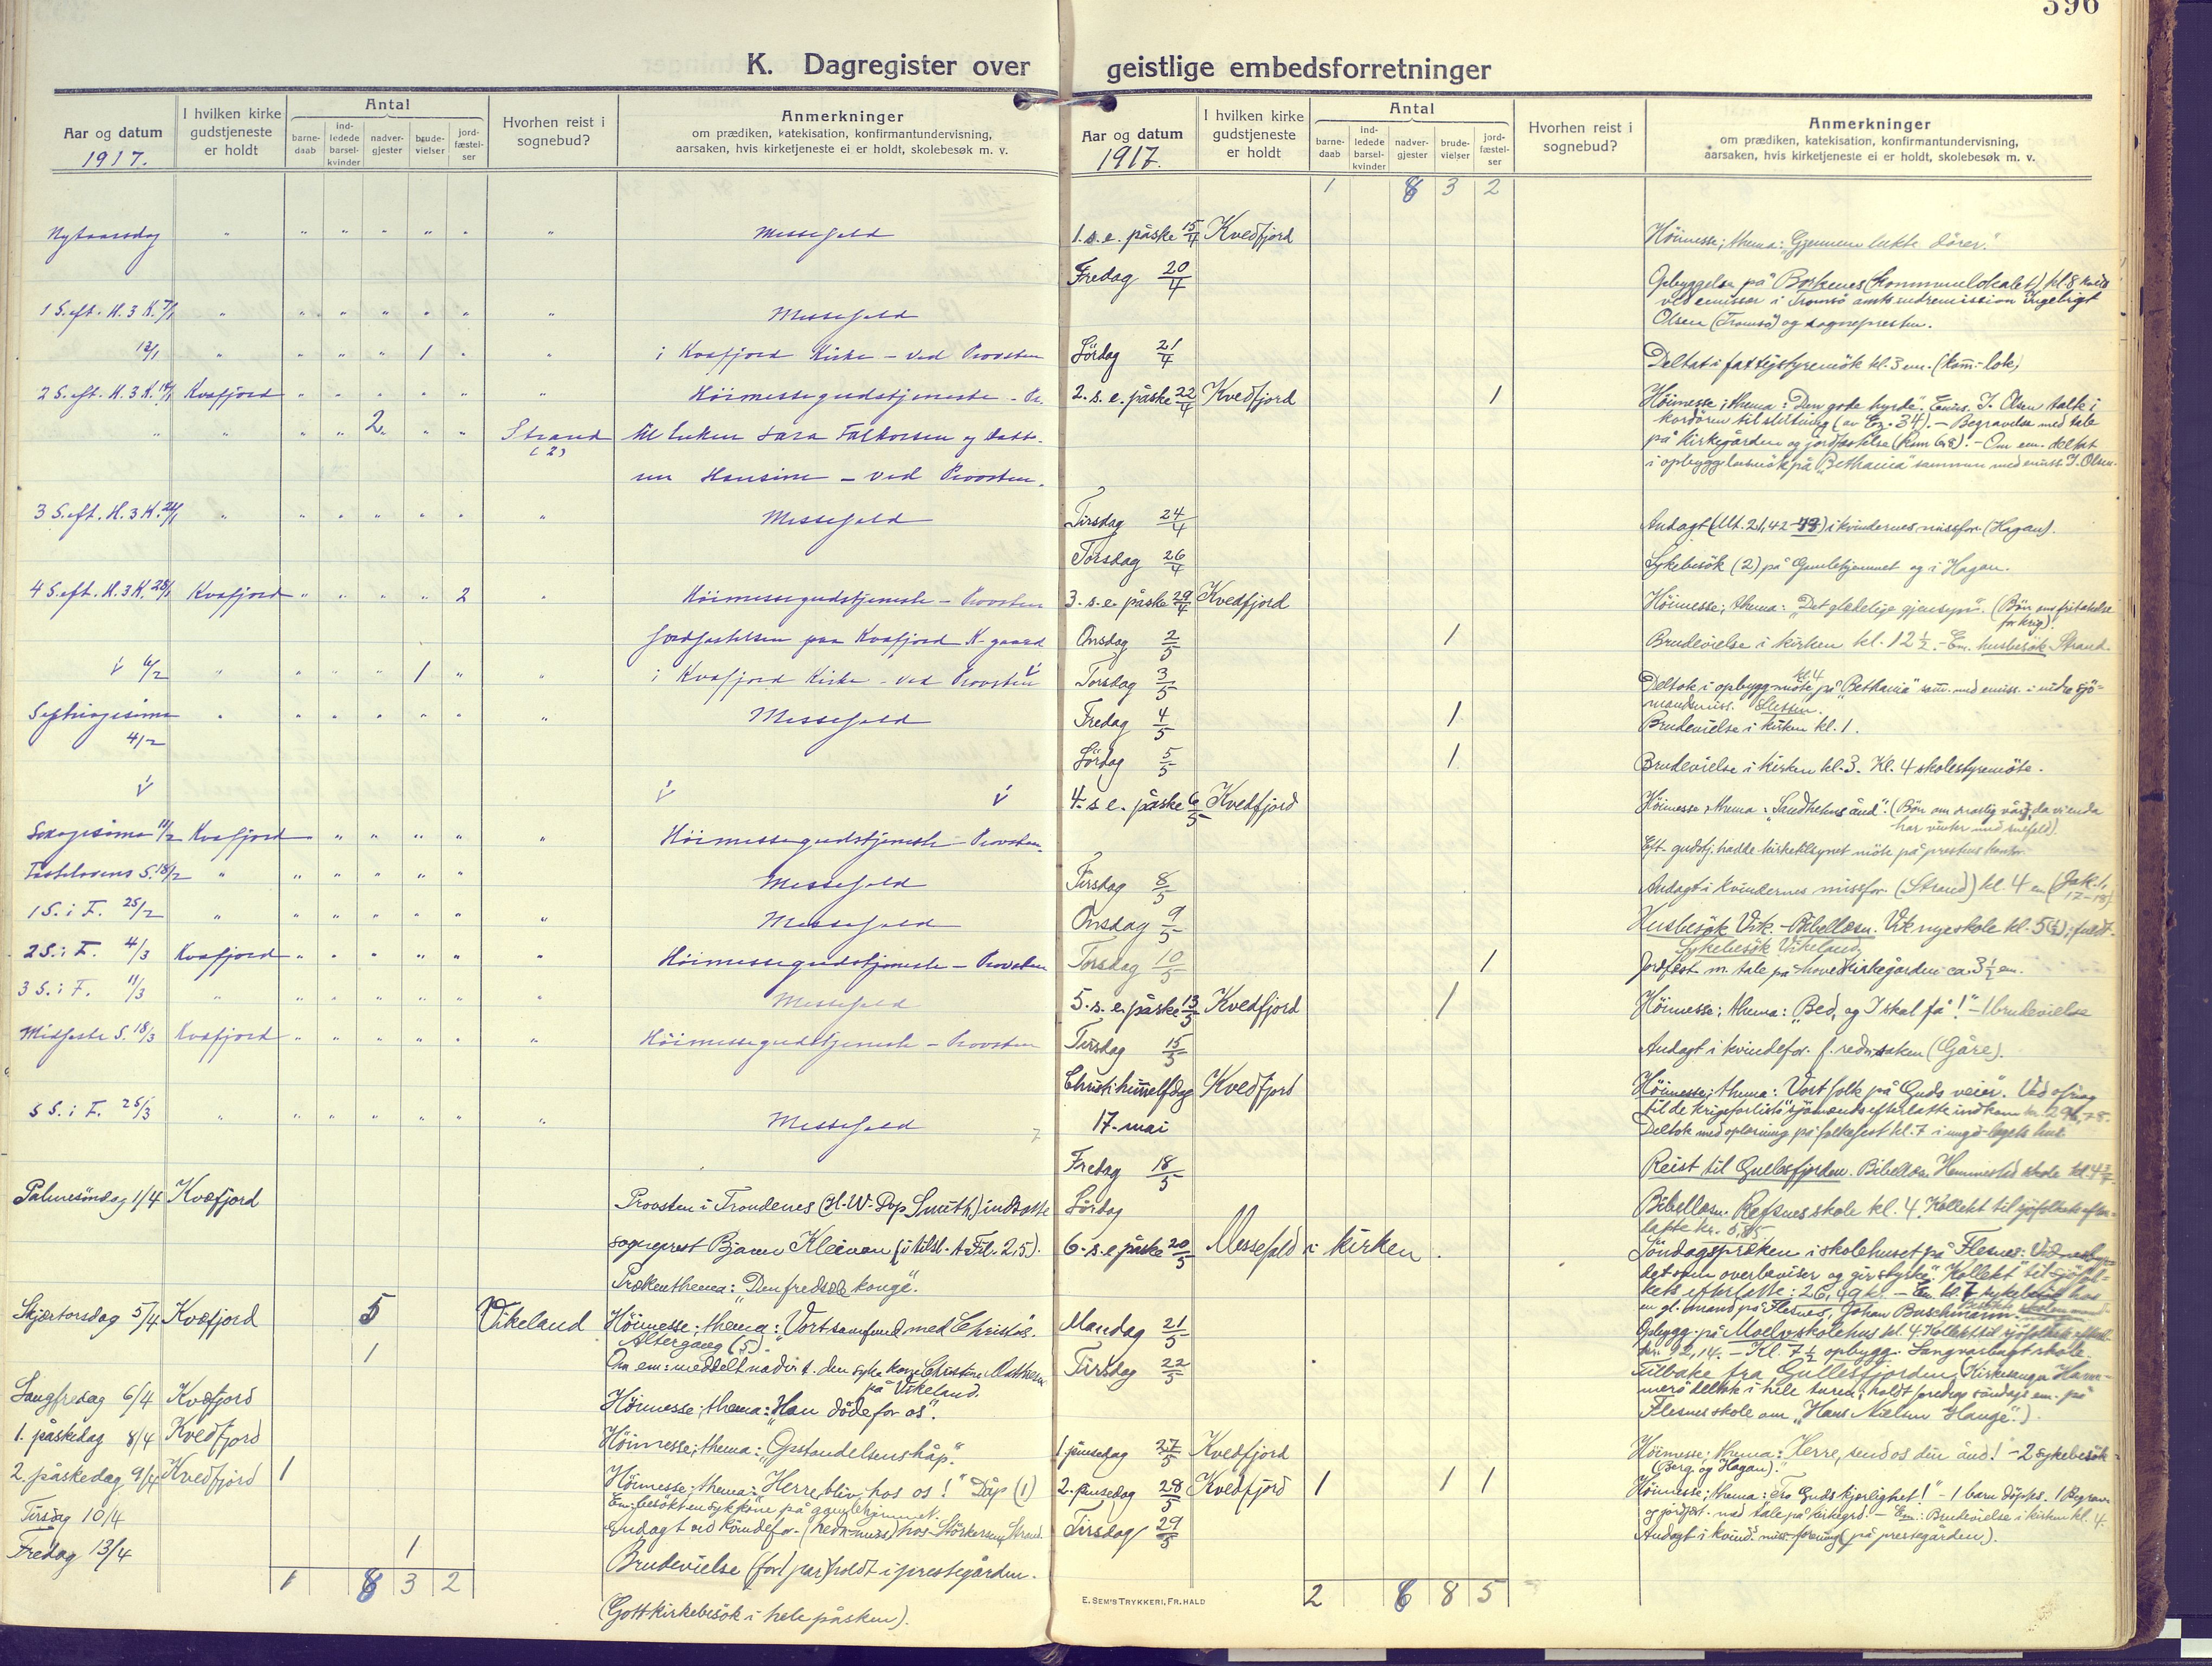 396
K. Dagregister over geistlige embedsforretninger
Aar og datum
1917.
I hvilken kirke
gudstjeneste
er holdt
Antal
barne-
daab
ind-
ledede
barsel-
kvinder
nadver-
gjester
brude-
vielser
jord-
fæstel-
ser
Hvorhen reist i
sognebud?
Anmerkninger
om prædiken, katekisation, konfirmantundervisning,
aarsaken, hvis kirketjeneste ei er holdt, skolebesøk m. v.
Nytaarsdag " " " " " " " Messefald
1 S. eft. H. 3 K. 7/1 " " " " " " " Messefald
12/1 " " " " " 1 " " i Kvæfjord Kirke - ved Provsten
2 S. eft. H. 3 K. 14/1 Kvæfjord " " " " " " Höimessegudstjeneste - Pr.
" " " " 2 " " Strand til enken Sara Falkorsen og datte-
(2)
ren Hansine - ved Provsten.
3 S. eft. H. 3 K. 21/1 " " " " " " " Messefald
4 S. eft. H. 3 K. 28/1 Kvæfjord " " " " 2 " Höimessegudstjeneste - Provsten
Jordfæstelsen paa Kvæfjord K-gaard
v 6/2 " " " " 1 " " i Kvæfjord Kirke - ved Provsten v
Septuagesima " " " " " " " Messefald
4/2
v v v
Sexagesima 11/2 Kvæfjord " " " " " " Höimessegudstjeneste - Provsten.
Fastelavens S. 18/2 " " " " " " Messefald
1 S. i F. 25/2 " " " " " " " " Messefald
2 S. i F. 4/3 Kvæfjord " " " " " " Höimessegudstjeneste - Provsten
3 S. i F. 11/3 " " " " " " Messefald
Midfaste S. 18/3 Kvæfjord " " " " " " Höimessegudstjeneste - Provsten
5 S. i F. 25/3 " " " " " " " Messefald
Palmesöndag 1/4 Kvæfjord Provsten i Trondenes (H. W. Pop Smith) indsatte
sogneprest Bjarne Kleivan
Prækenthema: "Den fredsæle konge".
Skjærtorsdag 5/4 Kvæfjord 5 Vikeland Höimesse; thema: "Vort samfund med Christus".
Altergang (5).
1 Om em: meddelt nadv. t. den syke kone Christine Mathisen
på Vikeland.
Langfredag 6/4 Kvæfjord Höimesse; thema: "Han döde for os".
1. påskedag 8/4 Kvedfjord Höimesse; thema: "Opstandelsens håp."
2. påskedag 9/4 Kvedfjord 1 Höimesse; thema: "Herre bliv hos os!" Dåp (1)
Em: besökt en syk kone på gamlehjemmet.
Tirsdag 10/4 Andagt ved kvindefor. (hedn.miss) hos Störkersen, Strand.
Fredag 13/4 1 Brudevielse (for 1 par) holdt i prestegården.
1 6 3 2
(Godt kirkebesök i hele påsken).
Aar og datum
1917.
I hvilken kirke
gudstjeneste
er holdt
Antal
barne-
daab
ind-
ledede
barsel-
kvinder
nadver-
gjester
brude-
vielser
jord-
fæstel-
ser
Hvorhen reist i
sognebud?
Anmerkninger
om prædiken, katekisation, konfirmantundervisning,
aarsaken, hvis kirketjeneste ei er holdt, skolebesøk m. v.
1 6 3 2
1. s. e. påske 15/4 Kvedfjord Höimesse; thema: "Gjennem lukte dörer."
Fredag 20/4 Opbyggelse på Borkenes (Kommunelokalet) kl. 8 kveld
ved emissær i Tromsö amts indremission Ingebrigt
Olsen (Tromsö) og sognepresten.
Lördag 21/4 Deltat i fattigstyremök kl. 3 em. (kom-lok)
2. s. e. påske 22/4 Kvedfjord 1 Höimesse; thema: "Den gode hyrde". Emis. I. Olsen talte i
kordören tilslutning (av Ez. 34). - Begravelse med tale
på kirkegården og jordfæstelse (Rom 6,8). - Om em. deltat
i opbyggelsesmök på "Bethania" sammen med emiss. I. Olsen.
Tirsdag 24/4 Andagt (Mt. 21,42-43) i kvindernes missfor. (Hagan).
Torsdag 26/4 Sykebesök (2) på Gamlehjemmet og i Hagan.
3. s. e. påske 29/4 Kvedfjord Höimesse; thema: "Det glædelige gjensyn". (Bön om fritagelse
for krig).
Onsdag 2/5 1 Brudevielse i kirken kl. 12 1/2. - Em. husbesök Strand.
Torsdag 3/5 Deltok i opbygg.möte kl. 4 på "Bethania" sam. med emiss. i indre sjö-
mandsmiss.
Fredag 4/5 1 Brudevielse i kirken kl. 1.
Lördag 5/5 1 Brudevielse i kirken kl. 3. Kl. 4 skolestyremöte.
4. s. e. påske 6/5 Kvedfjord Höimesse thema: "Sandhetens ånd". (Bön om snarlig vår, da vi enda
har vinter med snefald).
Eft. gudstj. hadde kirketilsynet möte på prestens kontor.
Tirsdag 8/5 Andagt i kvindernes missfor. (Strand) kl. 4 em (Jak. 1,
17-18)
Onsdag 9/5 Husbesök Vik. - Bibellæsn. Vik nye skole kl. 5
Sykebesök Vikeland.
Torsdag 10/5 1 Jordfæst m. tale på hovedkirkegården ca. 3 1/2 em.
5. s. e. påske 13/5 Kvedfjord 1 Höimesse; thema: "Bed, og I skal få!" - 1 brudevielse
Tirsdag 15/5 Andagt i kvindefor. f. redn.saken (Gåre).
Christi himmelfdag Kvedfjord Höimesse; thema: "Vort folk på Guds veier". Ved ofring
til de krigsforliste sjömænds efterlatte indkom kr.
17. mai Deltok med oplæsning på folkefest kl. 7 i ungd-lagets hus.
Fredag 18/5 Reist til Gullesfjorden. Bibellæsn. Hemmestad skole
Lördag Bibellæsn. Refsnes skole kl. 4. Kollekt til sjöfolkets efter-
latte kr. 5,85
6. s. e. påske 20/5 Messefald i kirken. Söndagspræken i skolehuset på Flesnes:
det som overbeviser og gir styrke". Kollekt til sjöfol-
kets efterlatte: 26,49 kr. - Em. kl. 7 sykebesök hos
en gl. mand på Flesnes, Johan Buschmann.
Mandag 21/5 Opbygg. på Moelv skolehus kl. 4. Kollekt til sjöfolkets efterl.
kr. 12,14. - Kl. 7 1/2 opbygg. Langvasbugt skole.
Tirsdag 22/5 Tilbake fra Gullesfjorden. (Kirkesanger Ham-
merö deltok i hele turen; holdt foredrag söndag em. på
Flesnes skole om "Hans Nielsen Hauge".)
1. pinsedag 27/5 Kvedfjord Höimesse; thema: "Herre, send os din ånd!" - 2 sykebesök
(Berg og Hagan).
2. pinsedag 28/5 Kvedfjord 1 1 1 Höimesse; thema: "Tro Guds kjærlighet!" - 1 barn döptes. 1 Begrav.
og jordfæst. med tale på kirkegrd. - Em: Brudevielse i kirken kl. 4.
Tirsdag 29/5 Andagt i kvind. miss-forening (på prestegården).
2 6 8 5
E. SEM'S TRYKKERI, FR.HALD